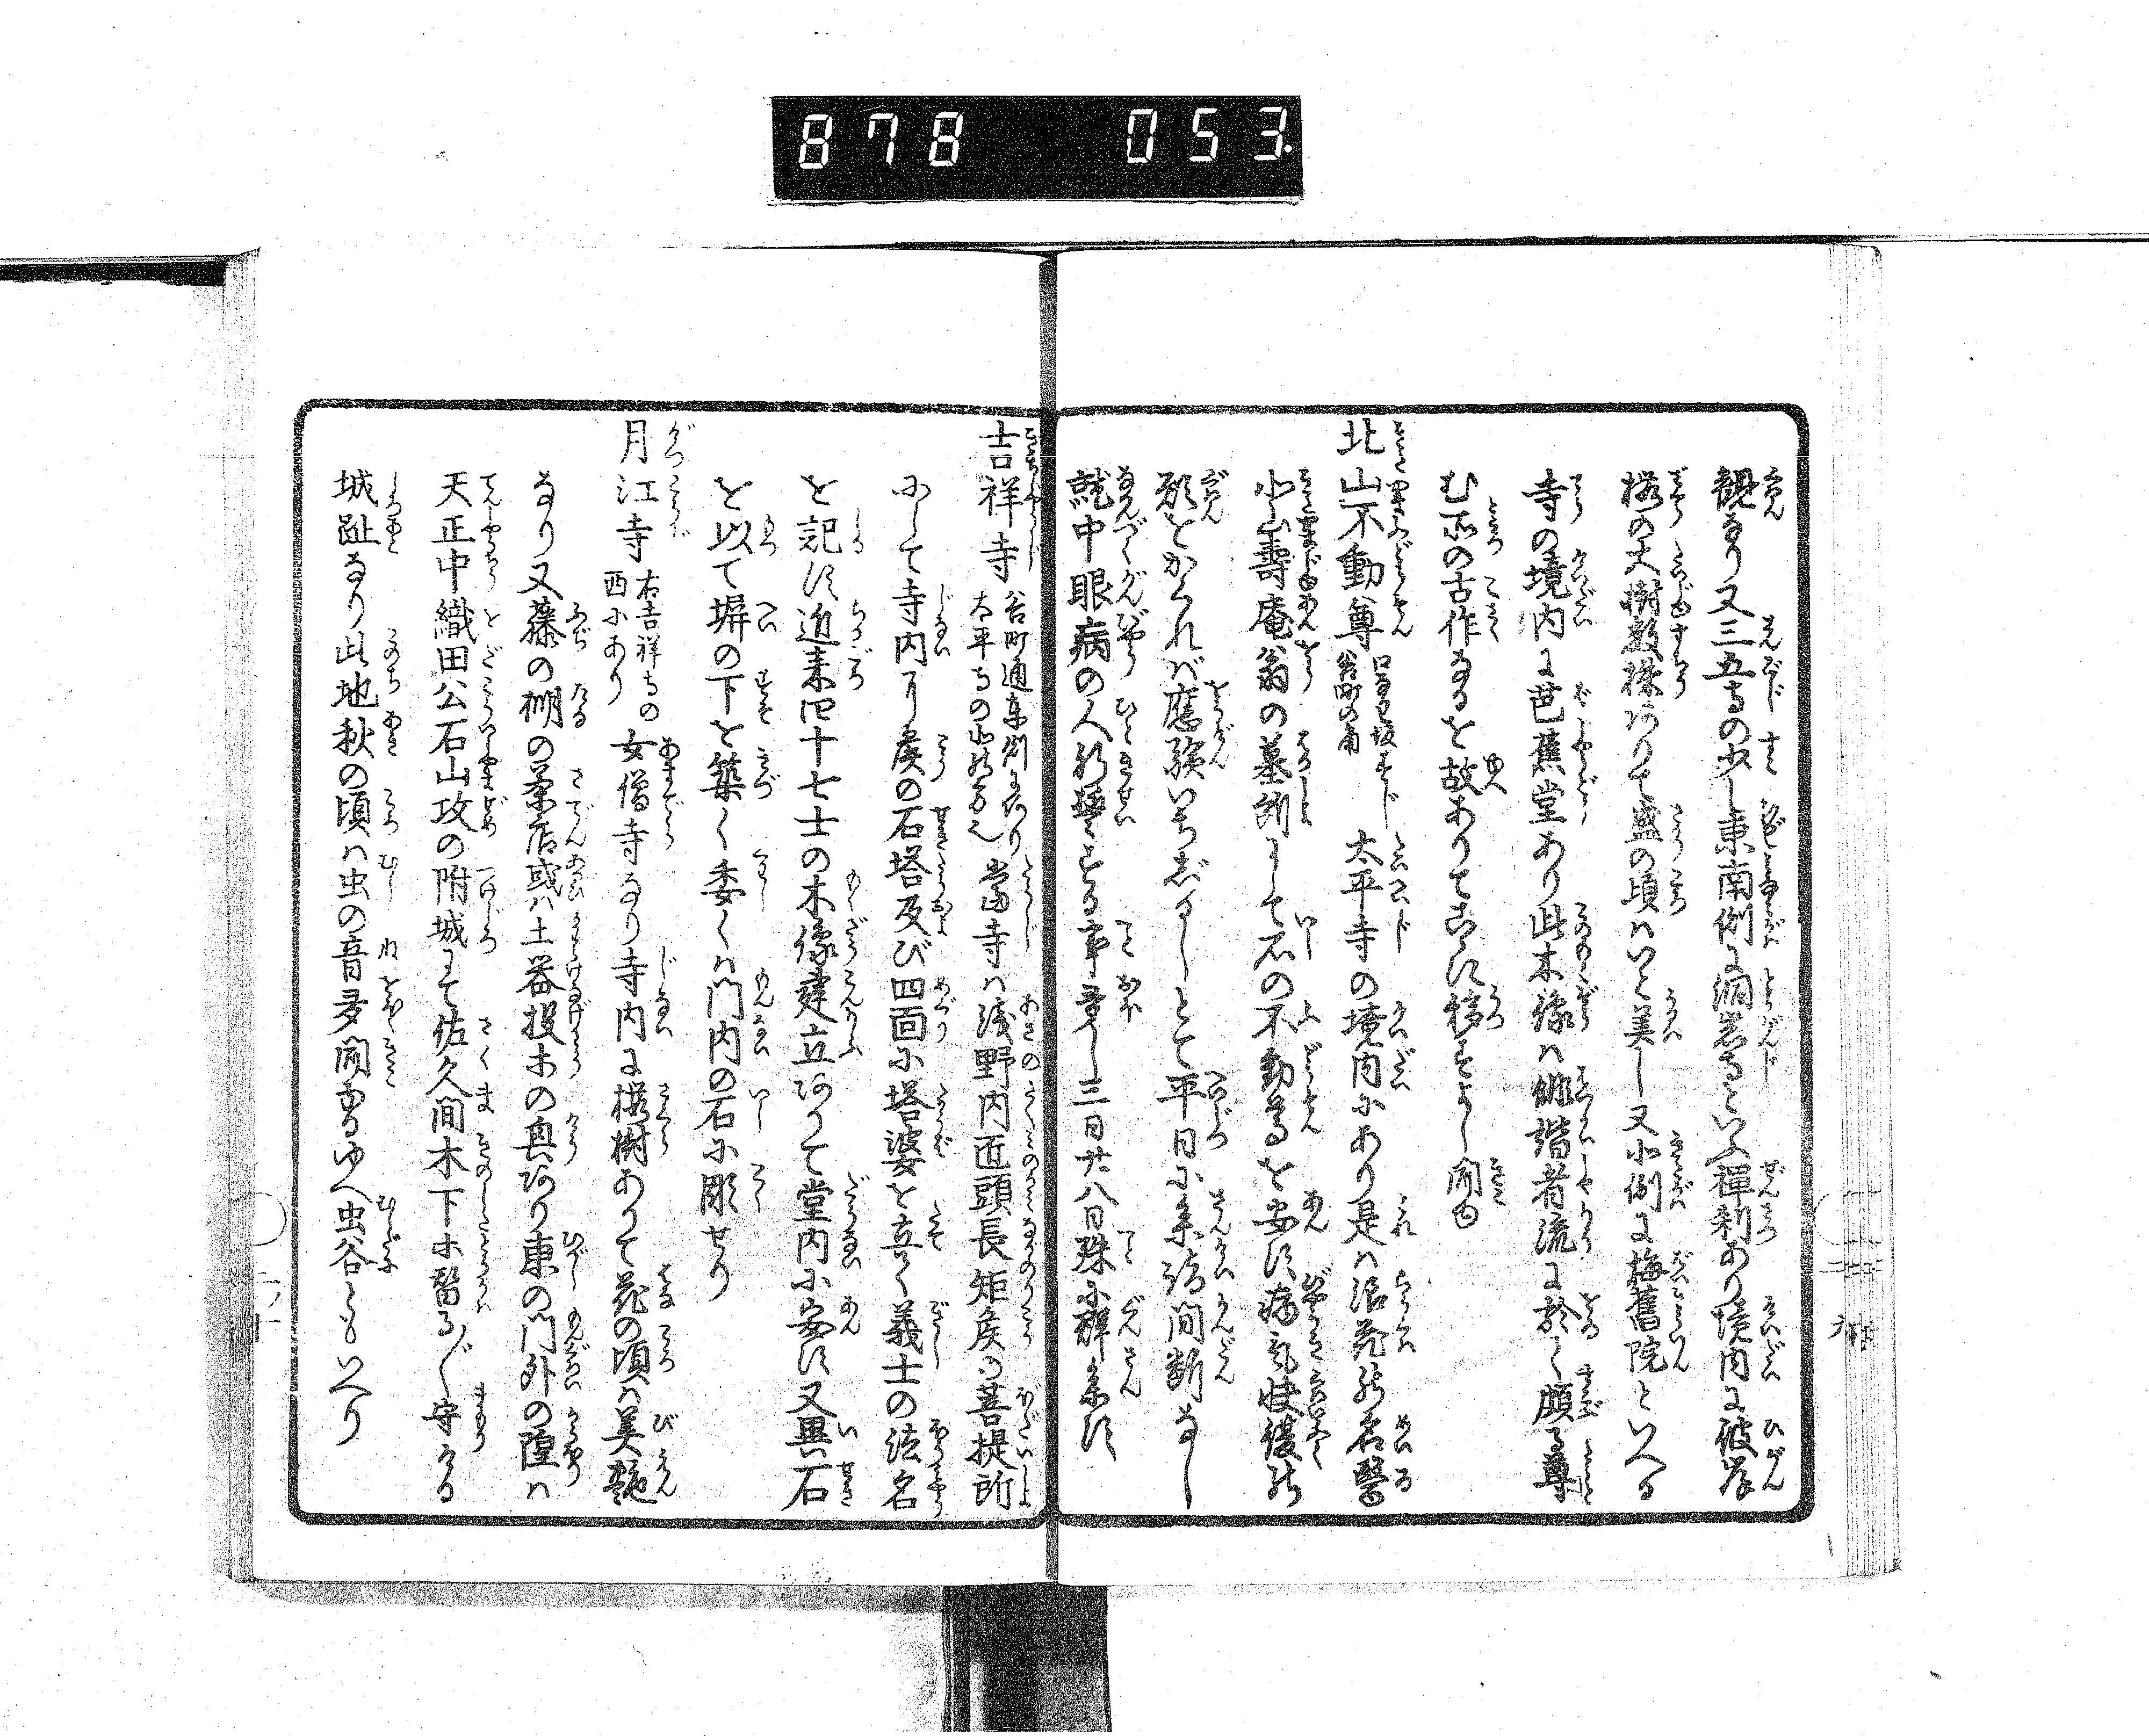 878 053
観なり又三五寺の少し東南側に洞岩寺といふ禅刹あり境内に彼岸
桜の大樹数株ありて盛の頃ハいと美し又北側に梅旧院といへる
寺の境内に芭蕉堂あり此木像ハ俳諧者流に於て頗る尊
む所の古作なるを故ありてこゝに移すよし聞ゆ
北山不動尊 太平寺の境内にあり是ハ浪花の名医
北山寿庵翁の墓所にして石の不動尊を安ず病気快復の
願をかくれバ応験いちじるしとて平日に参詣間断なし
就中眼病の人祈誓する事多し三日廿八日殊に群参す
吉祥寺 谷町通東側にあり太平寺の北の方也 当寺ハ浅野内匠頭長矩侯の菩提所
にして寺内に侯の石塔及び四面に塔婆を立て義士の法名
を記す近来四十七士の木像建立ありて堂内に安ず又異石
を以て塀の下を築く委しくハ門内の石に彫せり
月江寺 右吉祥寺の西にあり 女僧寺なり寺内に桜樹ありて花の頃ハ美艶
なり又藤の棚の茶店或ハ土器投等の興あり東の門外の隍ハ
天正中織田公石山攻の附城にて佐久間木下等留る〴〵守ける
城趾なり此地秋の頃ハ虫の音多聞ゆるゆへ虫谷ともいへり